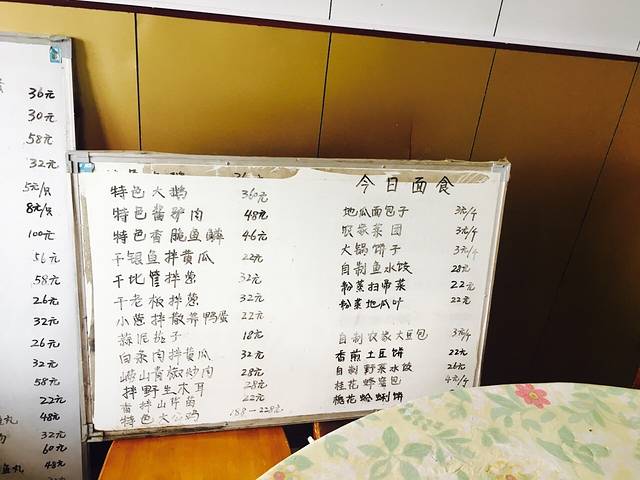 36元
30元
58元
32元
5元/只
8元/只
100元
56元
58元
26元
32元
26元
32元
58元
22元
丸 48元
32元
60元
鱼丸 48元
特色大鹅 360元
特色酱驴肉 48元
特色香脆鱼鳞 46元
干银鱼拌黄瓜 22元
干比管拌葱 32元
干老板拌葱 32元
小葱拌散养鸭蛋 22元
蒜泥茄子 18元
白汆肉拌黄瓜 32元
崂山青椒炒肉 28元
拌野生木耳 28元
香拌山野菌 22元
特色大公鸡 188-228元
今日面食
地瓜面包子 3元/个
农家菜团 3元/个
火锅饼子 3元/个
自制鱼水饺 28元
粉蒸扫帚菜 22元
粉蒸地瓜叶 22元
自制农家大豆包 3元/个
香煎土豆饼 22元
自制野菜水饺 26元
桂花蜂窝包 4元/个
桃花蛤蜊饼